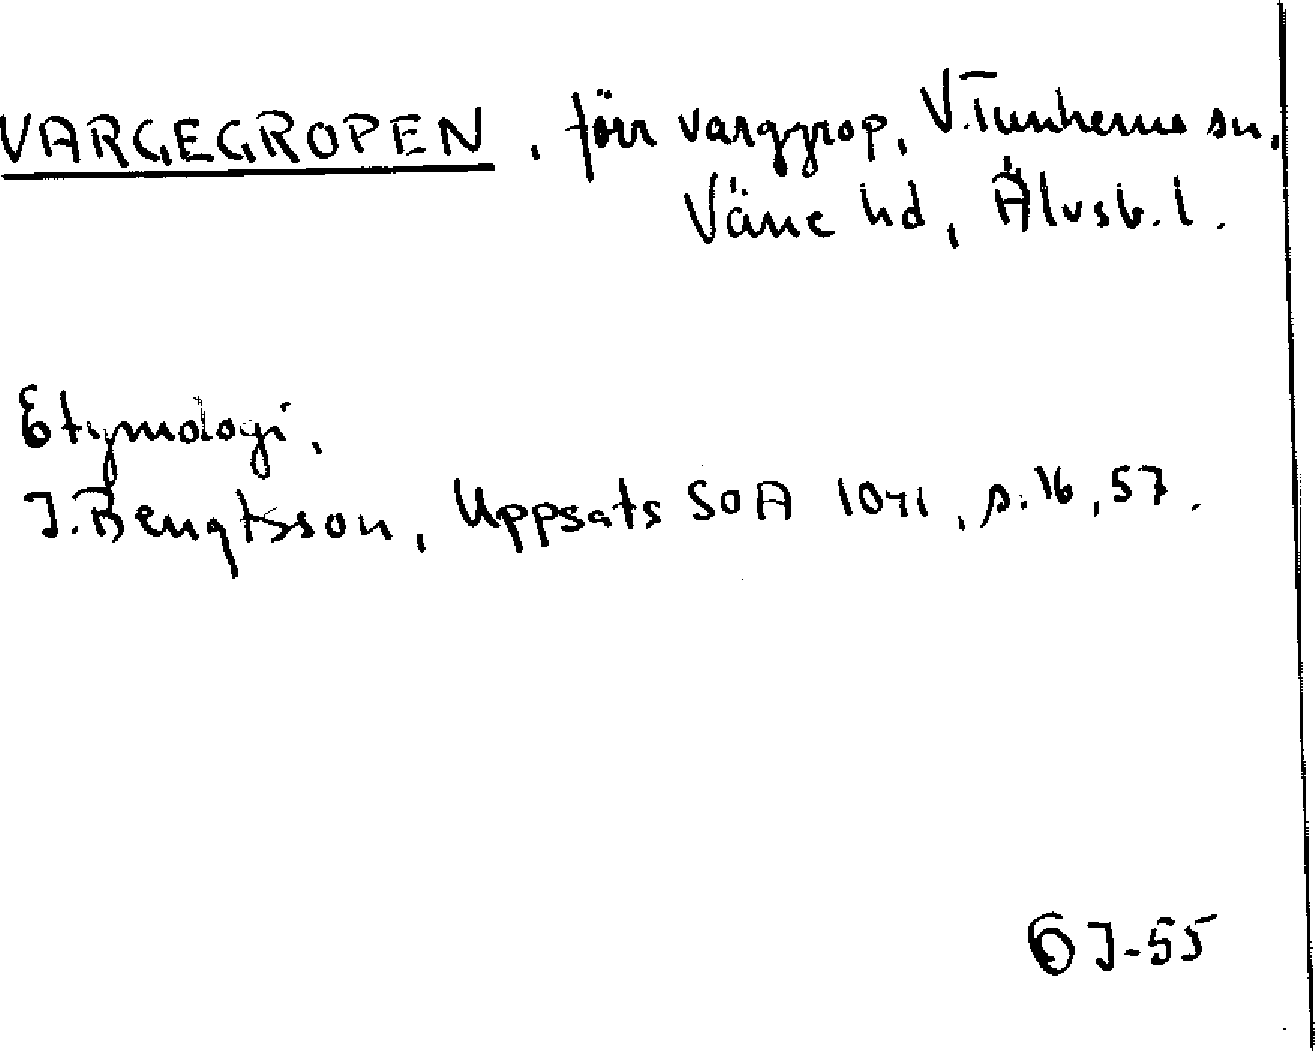 VARGEGROPEN, förr varggrop, V. Tunhems sn,
Väne hd, Älvsb. l.
Etymologi.
J. Bengtsson, Uppsats SOA s. 16, 57.
ÖJ-55